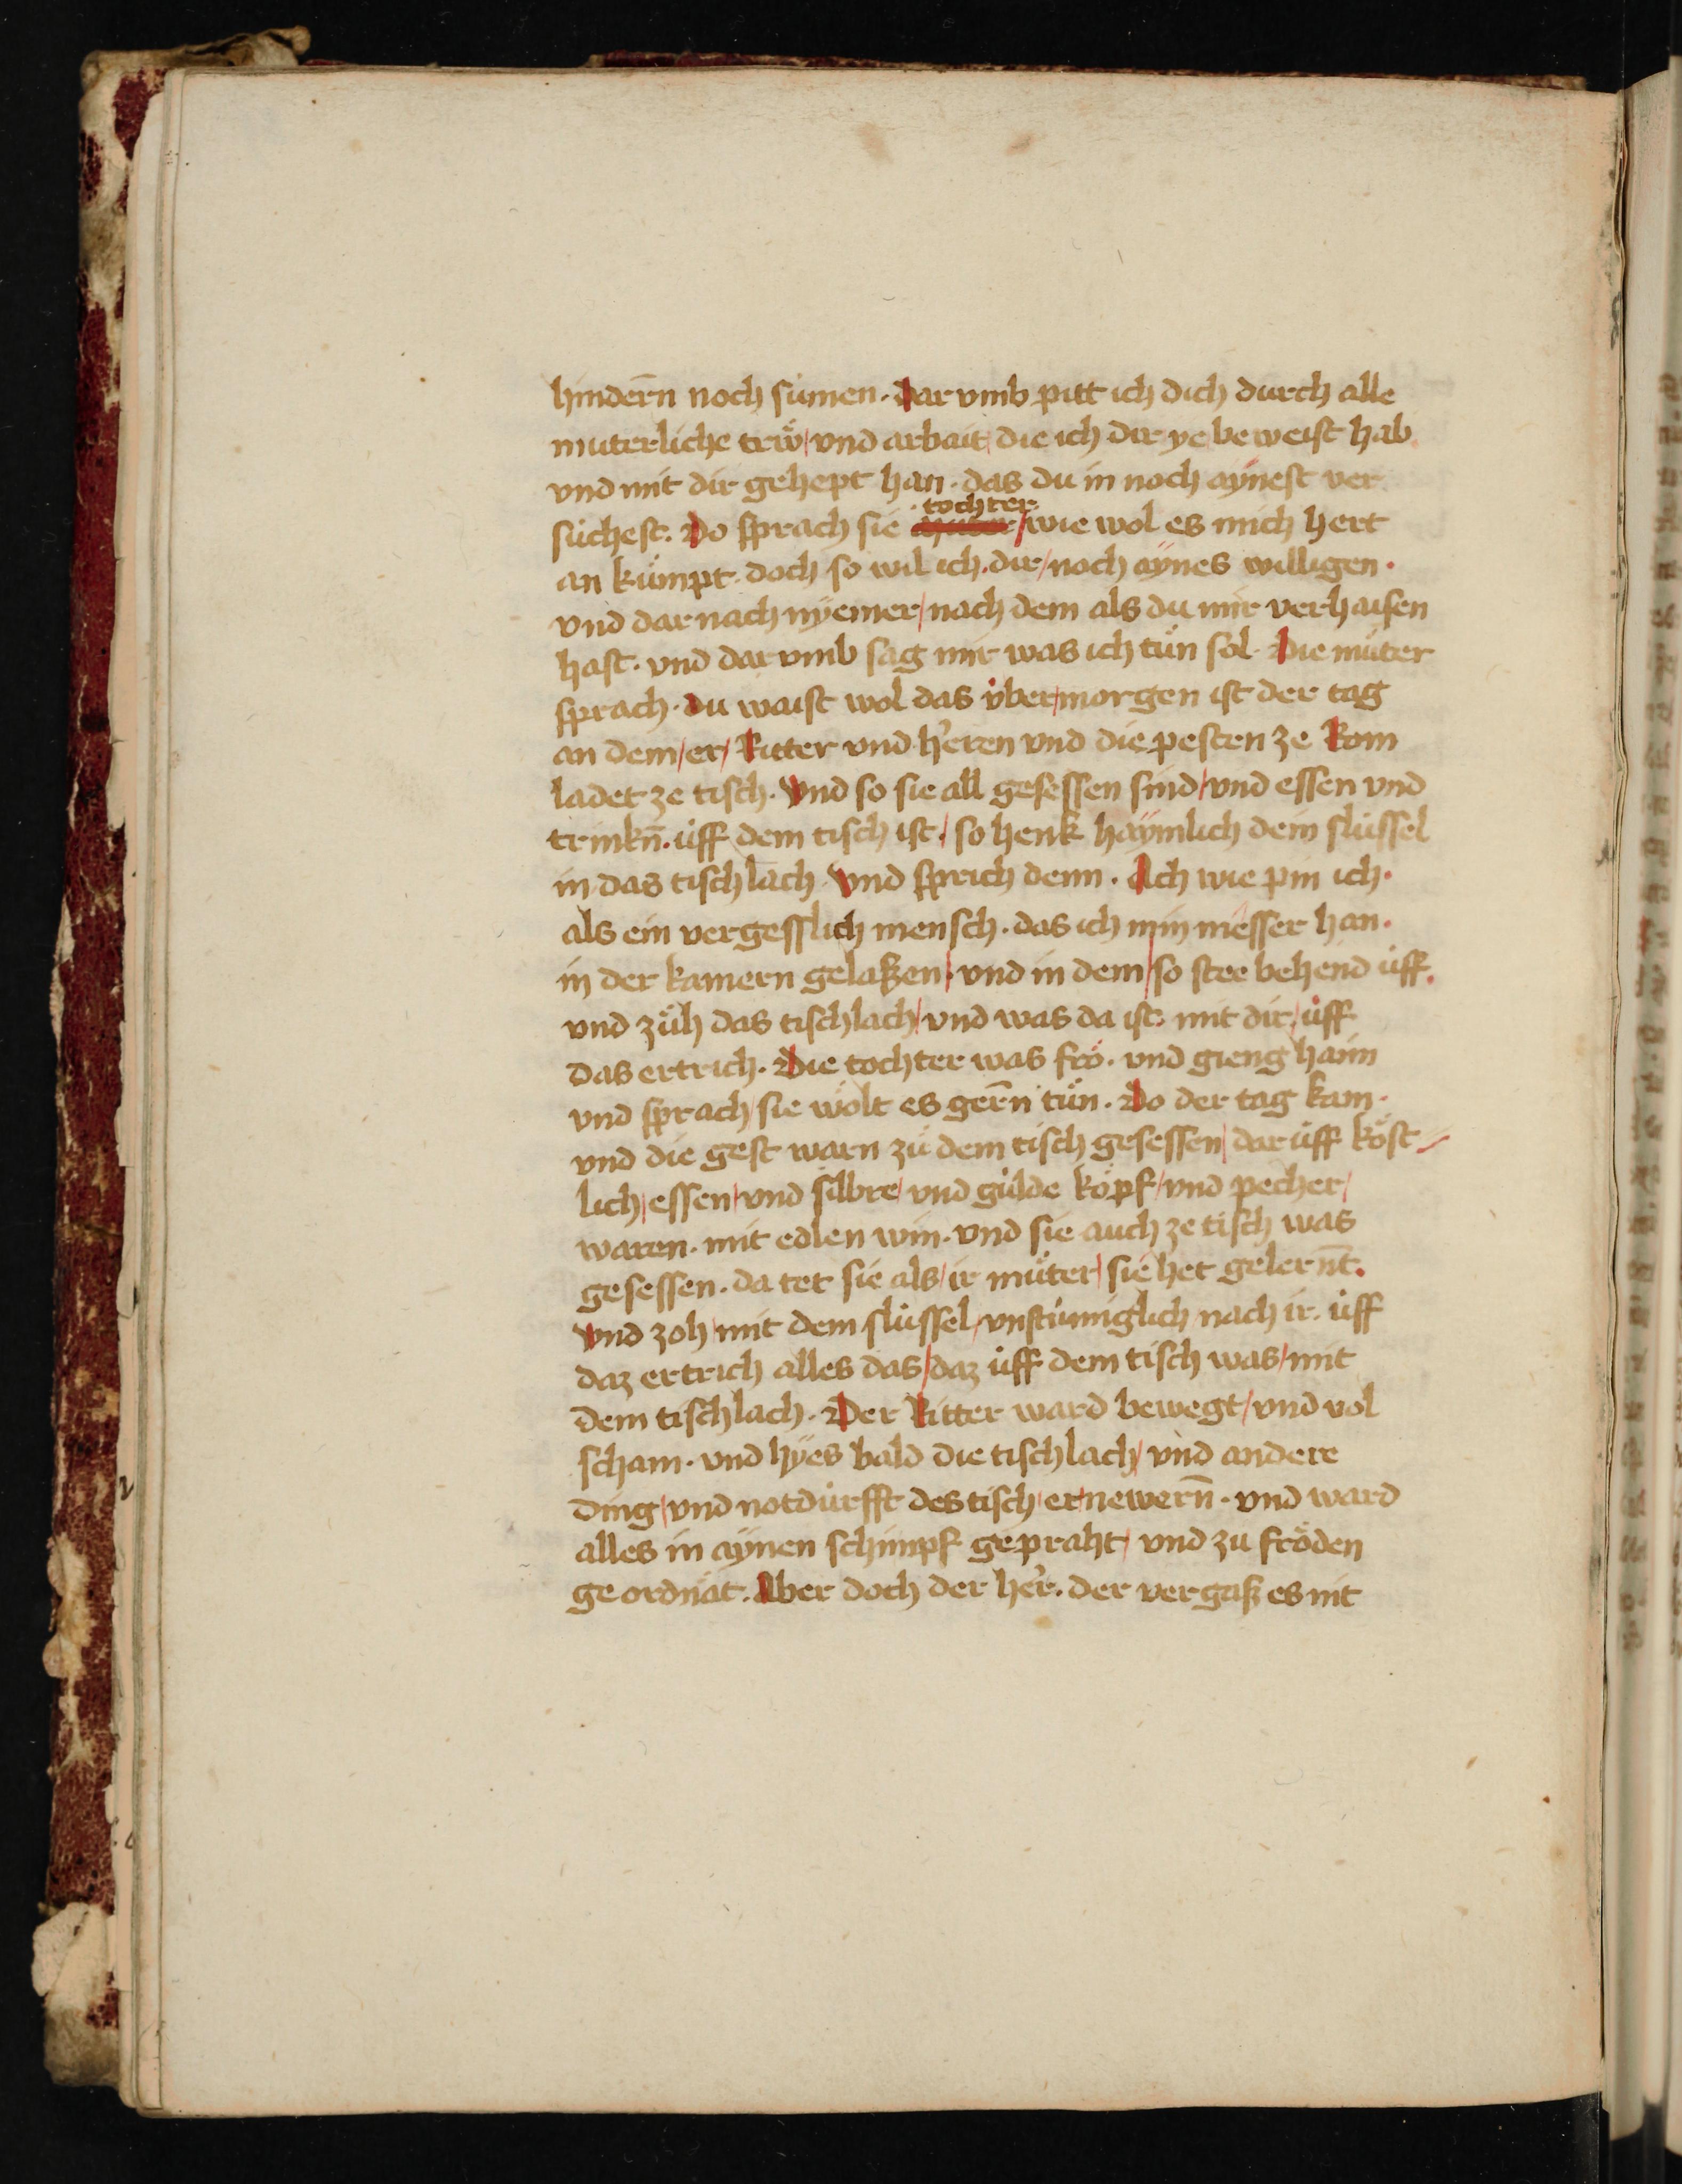 hindern̄ noch sumen · Dar vmb pitt ich dich durch alle
muterliche trẅ / vnd arbait / die ich dir ye be weist hab
vnd mit dir gehept han · das du in noch aÿnest ver
tochter
sůchest · Do sprach sie / wie wol es mich hert
an kümpt · doch so wil ich · dir / noch aÿnes willigen ·
vnd dar nach nÿemer / nach dem als du mir verhaisen
hast · vnd dar vmb sag mir was ich tůn sol · Die můter
sprach · du waist wol das v̊ber / morgen ist der tag
an dem / er / Ritter vnd heren vnd die pesten ze Rom
ladet ze tisch · Vnd so sie all gesessen sind / vnd essen vnd
trinkn̄ · u̇ff dem tisch ist / so henk haÿmlich dein slüssel
in das tischlach · Vnd sprich denn · Ach wie pin ich ·
als ein vergesslich mensch · das ich min messer han ·
in der kamern gelaßen / vnd in dem / so stee behend u̇ff ·
vnd züh das tischlach / vnd was da ist · mit dir / u̇ff
das ertrich · Die tochter was frö · vnd gieng haim
vnd sprach / sie wölt es gern̄ tůn · Do der tag kam ·
vnd die gest warn zů dem tisch gesessen / dar u̇ff köst
lich / essen / vnd silbre / vnd gulde köpf / vnd pecher /
waren · mit edlen win · vnd sie auch ze tisch was
gesessen · da tet sie als / ir můter / sie het gelern̄t ·
Vnd zoh / mit dem slüssel / vnstümiglich / nach ir · u̇ff
daz ertrich alles das / daz u̇ff dem tisch was / mit
dem tischlach · Der Ritter ward bewegt / vnd vol
scham · vnd hÿes bald die tischlach / vnd andere
ding / vnd notdürfft des tisch / ernewern̄ · vnd ward
alles in aÿnen schimpf gepraht / vnd zu fröden
ge ordnat · Aber doch der her · der vergaß es nit